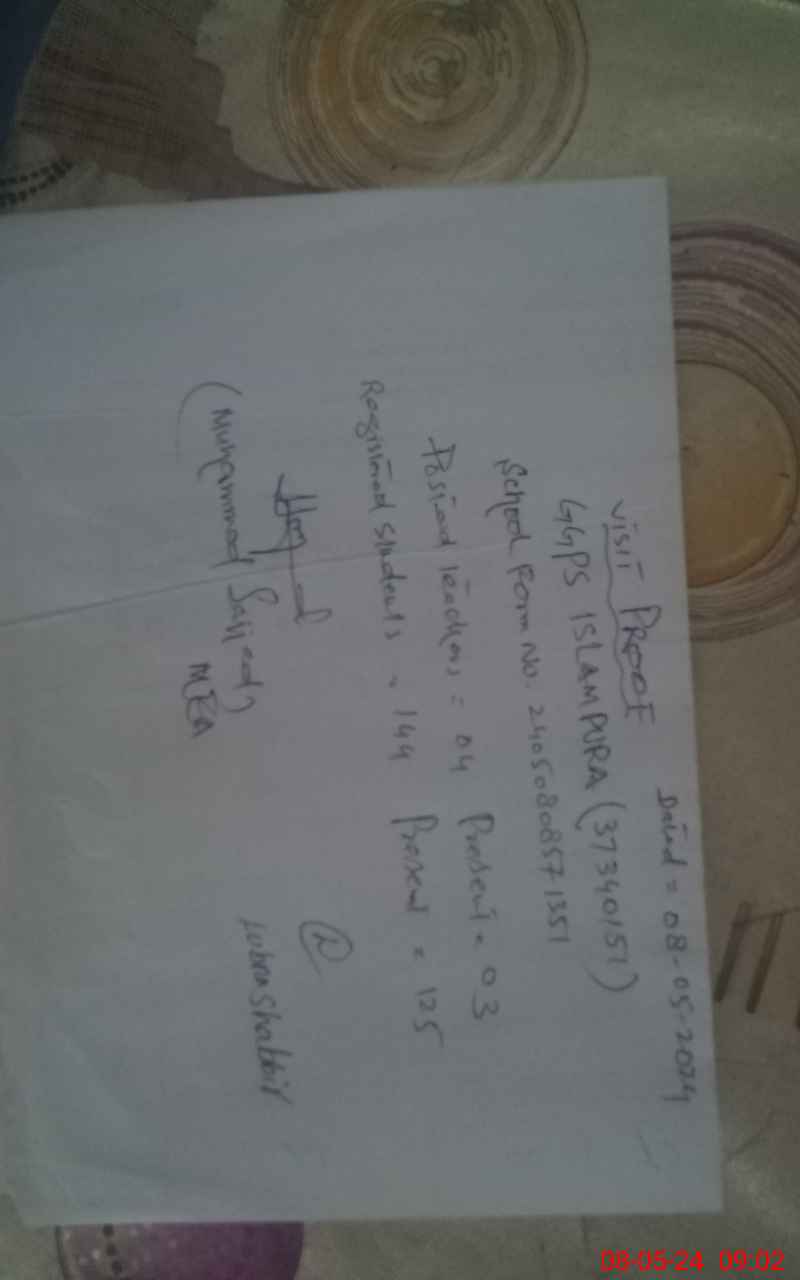 Dated = 08-05-2024
VISIT PROOF
GGPS ISLAMPURA (37340151)
School Form No. 24050808571351
Posted teachers = 04 Present = 03
Registered students = 144 Present = 125
(Muhammad Sajjad)
MEA
Lubna Shabbir
08-05-24 09:02